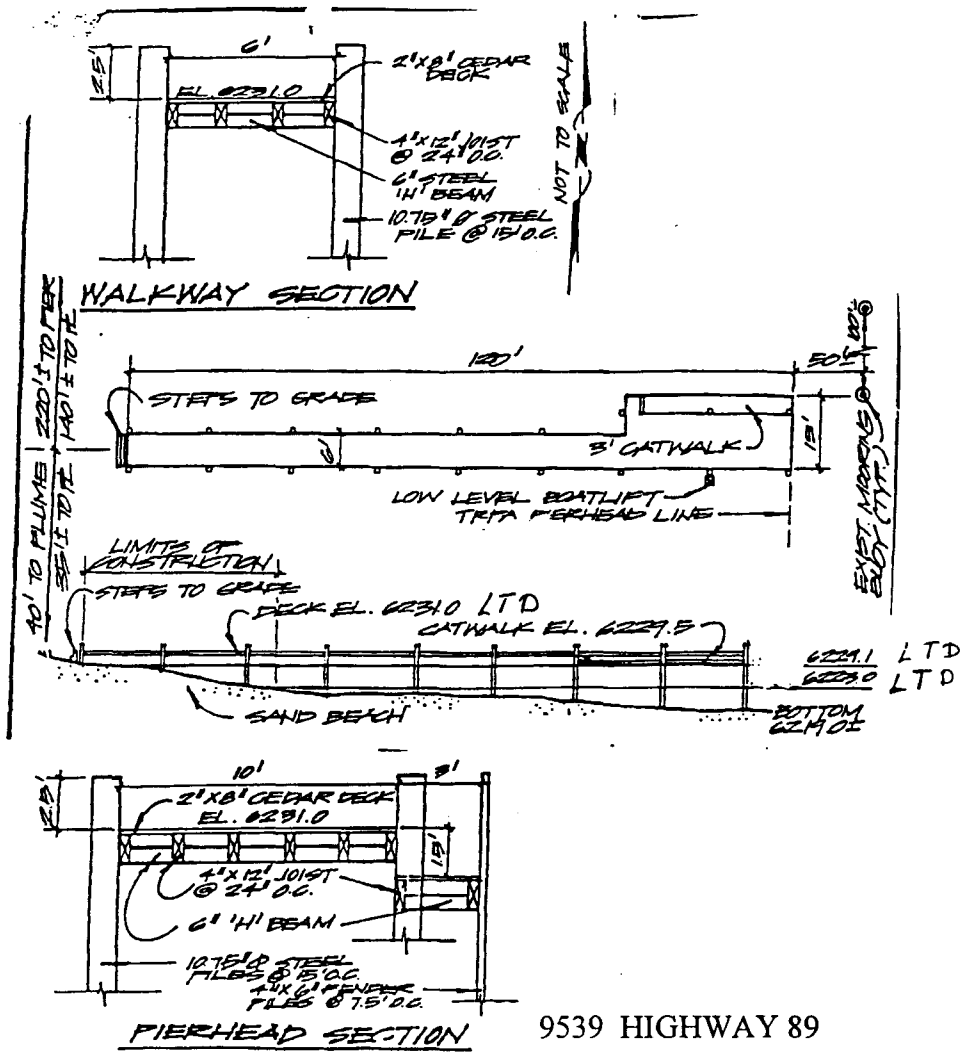 6'
2.5'
2"X8" CEDAR
DECK
EL. 6231.0
4"X12" JOIST
@ 24" O.C.
6" STEEL
'H' BEAM
10.75" Ø STEEL
PILE @ 15' O.C.
NOT TO SCALE
WALKWAY SECTION
40' TO PLUME | 220'± TO PIER
35'± TO PL | 140'± TO PL
120'
50'±
100'±
STEPS TO GRADE
6'
3' CATWALK
13'
LOW LEVEL BOATLIFT
TRPA PIERHEAD LINE
EXIST. MOORING
BUOY (TYP.)
LIMITS OF
CONSTRUCTION
STEPS TO GRADE
DECK EL. 6231.0 LTD
CATWALK EL. 6229.5
6229.1 LTD
6223.0 LTD
SAND BEACH
BOTTOM
6219.0±
10'
3'
2.5'
2"X8" CEDAR DECK
EL. 6231.0
1.5'
4"X12" JOIST
@ 24" O.C.
6" 'H' BEAM
10.75" Ø STEEL
PILES @ 15' O.C.
4"X6" FENDER
PILES @ 7.5' O.C.
PIERHEAD SECTION
9539 HIGHWAY 89